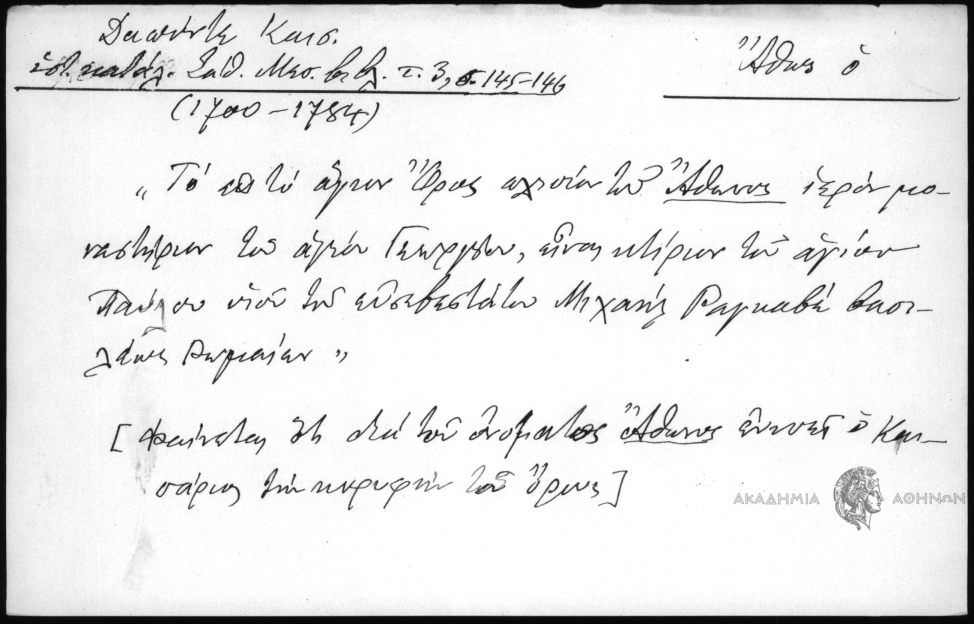 Δαπόντε Καισ.
ἱστ. κατάλ. Σαθ. Μεσ. βιβλ. τ. 3, σ. 145-146
Ἄθως ὁ
(1700-1784)
„Τό εἰς τό ἅγιον Ὄρος πλησίον τοῦ Ἄθωνος ἱερόν μο-
ναστήριον τοῦ ἁγίου Γεωργίου, εἶναι κτίριον τοῦ ἁγίου
Παύλου υἱοῦ τοῦ εὐσεβεστάτου Μιχαήλ Ραγκαβέ βασι-
λέως Ρωμαίων"
[Φαίνεται ὅτι διά τοῦ ὀνόματος Ἄθωνος ἐννοεῖ ὁ Και-
σάριος τήν κορυφήν τοῦ Ὄρους]
ΑΚΑΔΗΜΙΑ ΑΘΗΝΩΝ